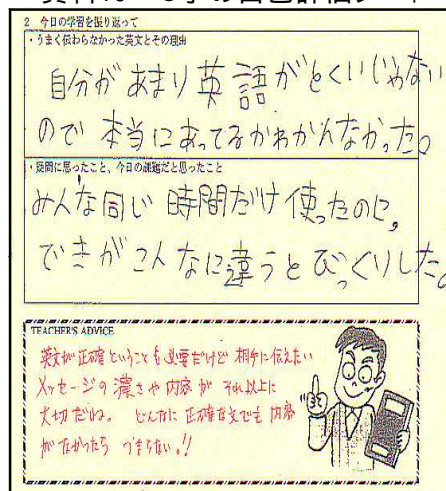 2 今日の学習を振り返って
・うまく伝わらなかった英文とその理由
自分があまり英語がとくいじゃない
ので本当にあってるかわかんなかった。
・疑問に思ったこと、今日の課題だと思ったこと
みんな同じ時間だけ使ったのに、
できがこんなに違うとびっくりした。
TEACHER'S ADVICE
英文が正確ということも必要だけど相手に伝えたい
メッセージの濃さや内容がそれ以上に
大切だね。どんなに正確な文でも内容
がなかったらつまらない!!